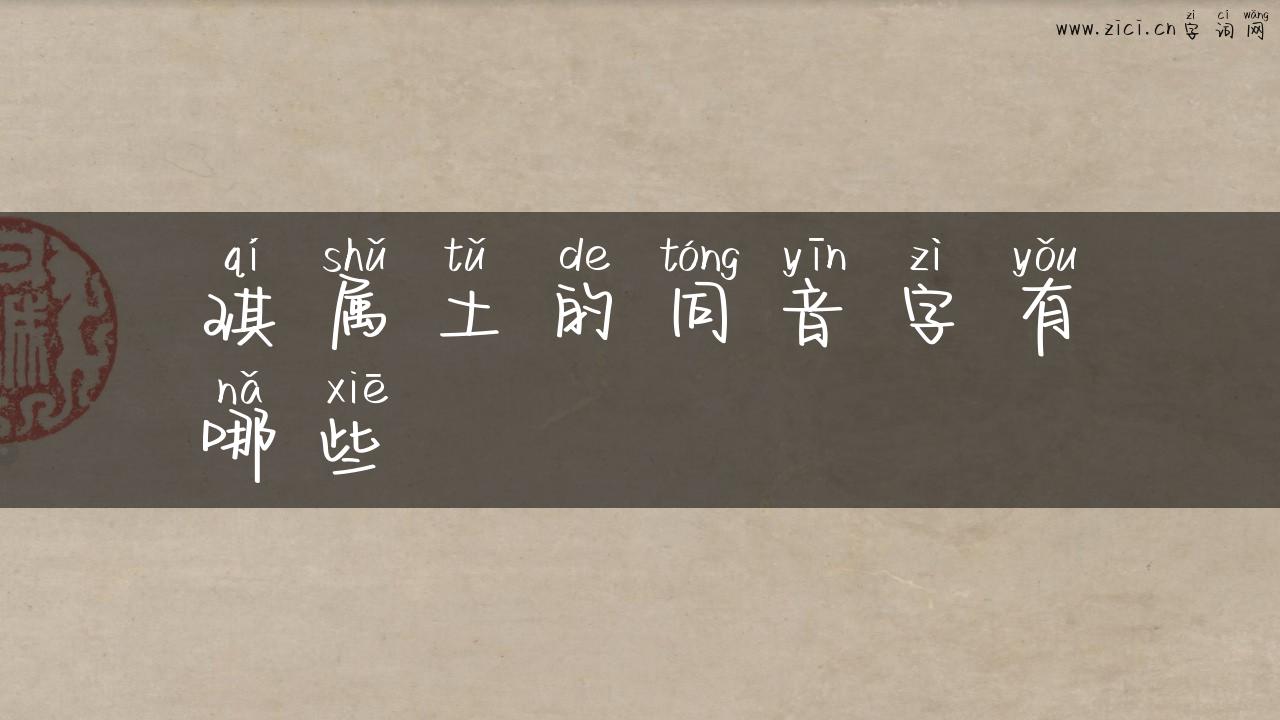 www.zici.cn zì cí wǎng 字词网
qí shǔ tǔ de tóng yīn zì yǒu
琪属土的同音字有
nǎ xiē
哪些